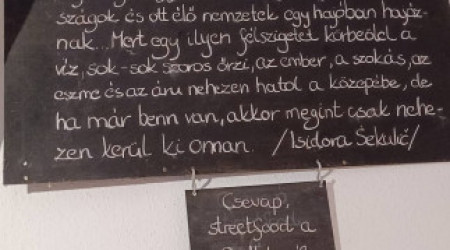 szágok és ott élő nemzetek egy hajóban hajóz-
nak... Mert egy ilyen félszigetet körbeölel a
víz, sok-sok szoros őrzi, az ember, a szokás, az
eszme és az áru nehezen hatol a közepébe, de
ha már benn van, akkor megint csak nehe-
zen kerül ki onnan. /Isidora Sekulić/
Csevap,
streetfood a